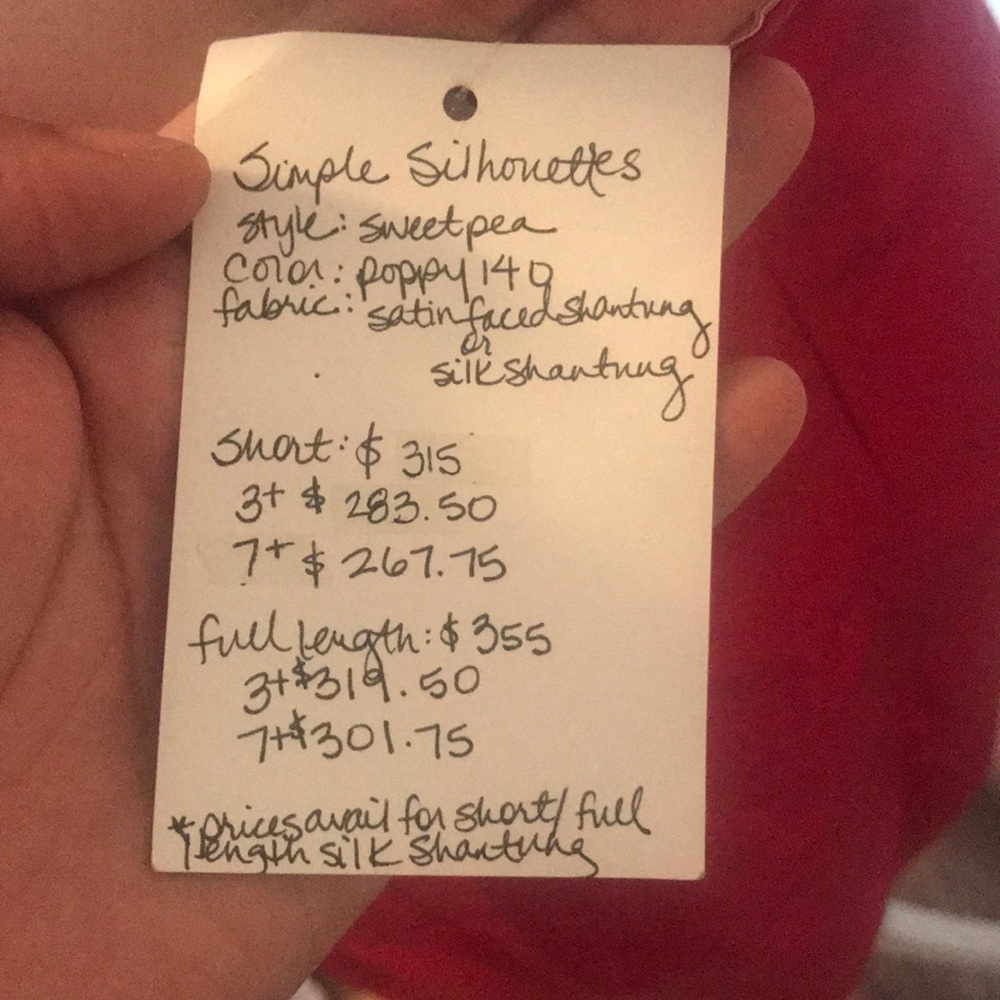 Simple Silhouettes
style: sweetpea
color: poppy 140
fabric: satin faced shantung
or
silk shantung
Short: $ 315
3+ $ 283.50
7+ $ 267.75
full length: $ 355
3+ $319.50
7+ $301.75
* prices avail for short/full
length silk shantung